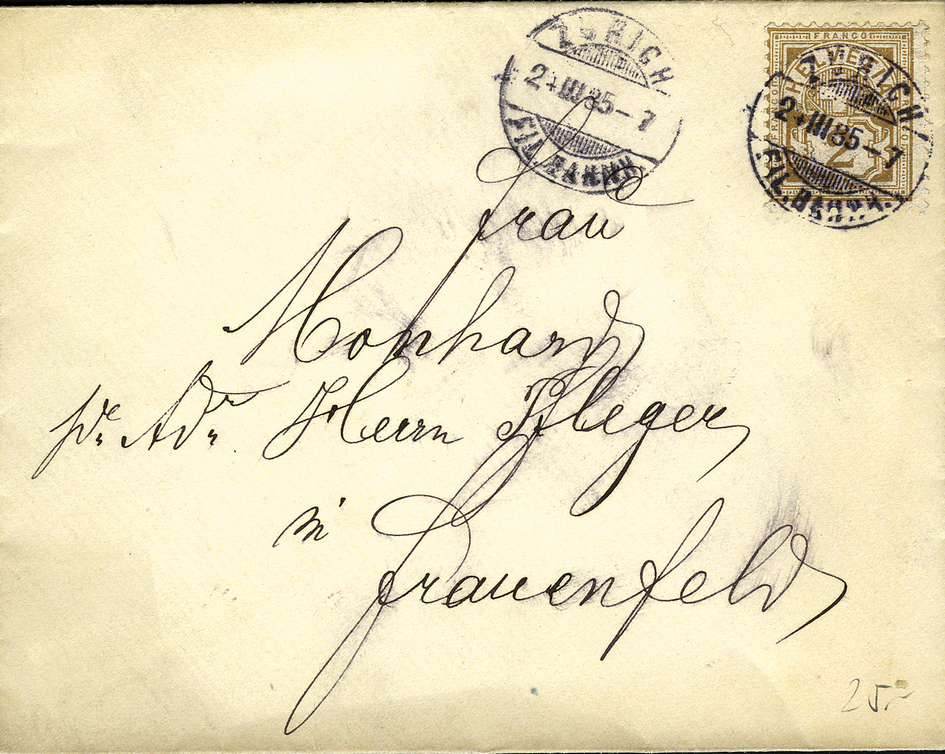 ZÜRICH
2.III.85-7
FIL. BAHNH.
FRANCO
HELVETIA
2
ZÜRICH
2.III.85-7
FIL. BAHNH.
Frau
Monhard
pr. Adr. Herrn Pfleger,
in
Frauenfeld,
25.-